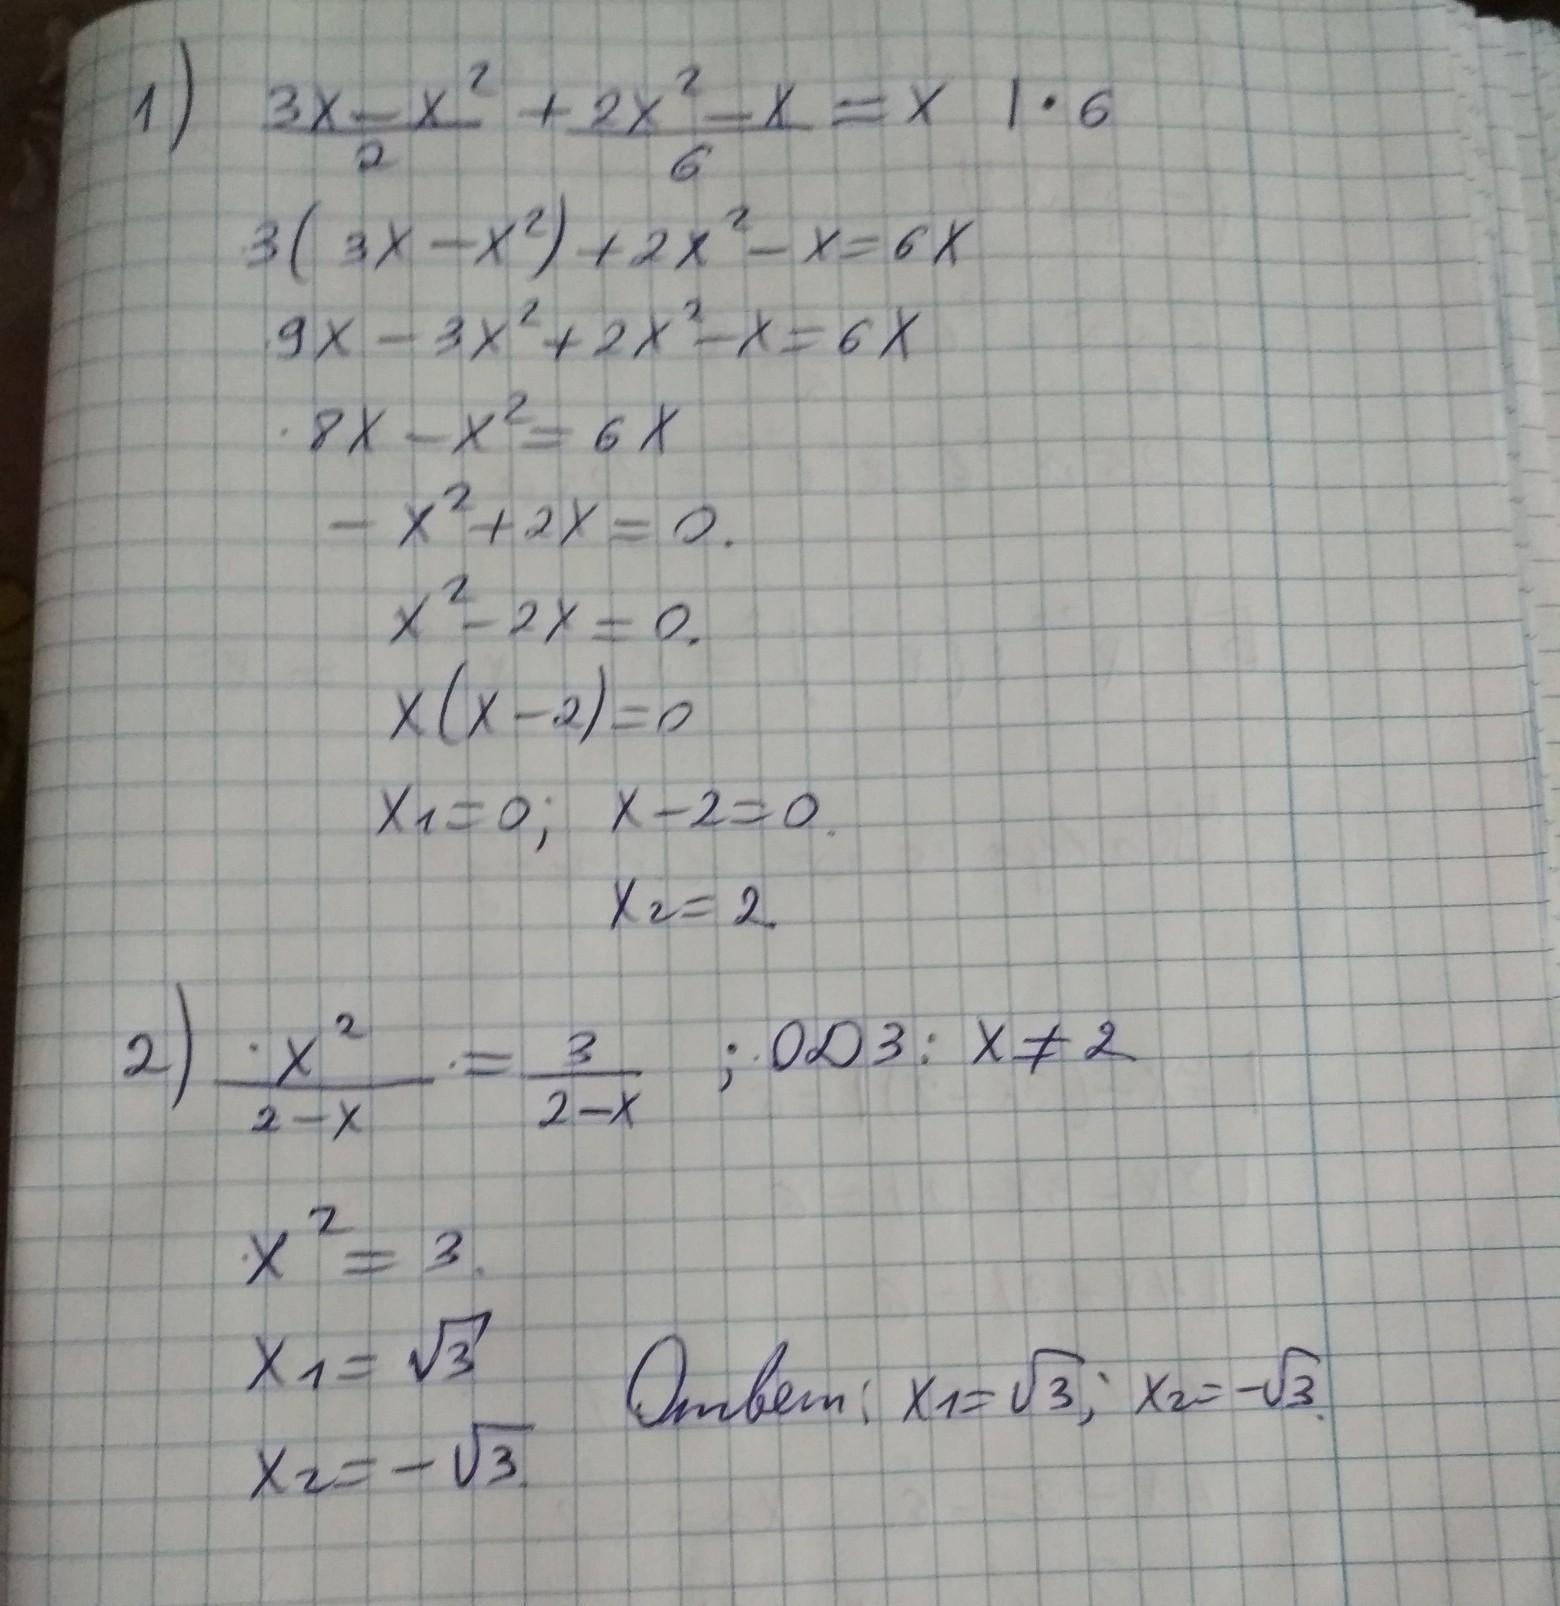 1) (3x - x²)/2 + (2x² - x)/6 = x | · 6
3(3x - x²) + 2x² - x = 6x
9x - 3x² + 2x² - x = 6x
8x - x² = 6x
- x² + 2x = 0.
x² - 2x = 0.
x(x - 2) = 0
x₁ = 0; x - 2 = 0.
x₂ = 2.
2) x²/(2 - x) = 3/(2 - x) ; ОДЗ: x ≠ 2
x² = 3.
x₁ = √3
Ответ: x₁ = √3; x₂ = -√3.
x₂ = -√3.